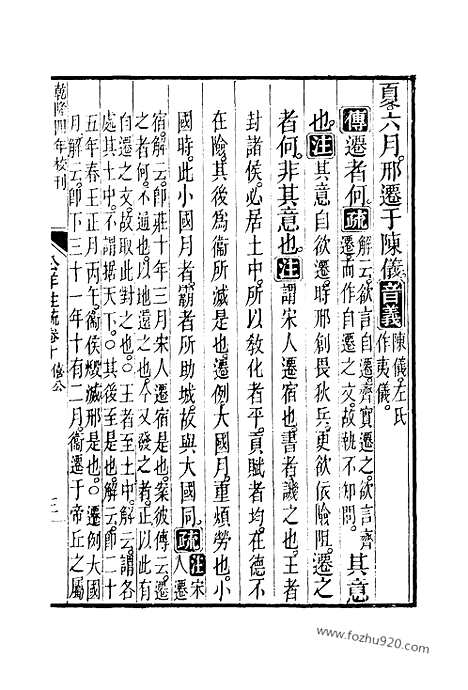 夏六月邢遷于陳儀。音義陳儀左氏
作夷儀。
傳遷者何。疏解云欲言自遷齊實遷之欲言齊
遷而作自遷之文故執不知問。其意
也。注其意自欲遷。時邢創畏狄兵。更欲依險阻。遷之
者何。非其意也。注謂宋人遷宿也。書者譏之也。王者
封諸侯。必居土中。所以敎化者平。貢賦者均。在德不
在險。其後爲衞所滅是也。遷例大國月。重煩勞也。小
國時。此小國月者。霸者所助城。故與大國同。疏注宋
人遷
宿解云卽莊十年三月宋人遷宿是也。案彼傳云遷
之者何。不通也。以地還之也。今又發之者。正以此有
自遷之文。故取此對之也。○王者至土中。解云謂各
處其土中。不謂据天下。○其後至是也。解云卽二十
五年春王正月丙午。衞侯燬滅邢是也。○遷例大國
月。解云卽下三十一年十有二月。衞遷于帝丘之屬
乾隆四年校刊
公羊注疏卷十 僖公
www.fozhu920.com